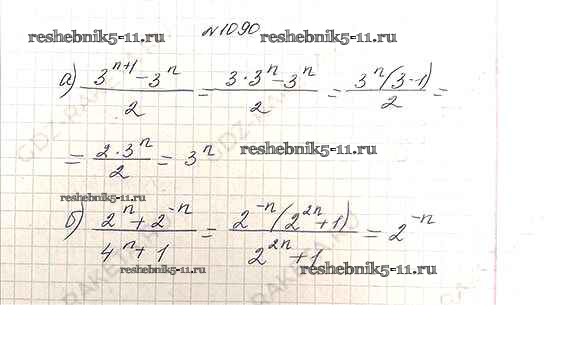 №1090
reshebnik5-11.ru reshebnik5-11.ru
а) (3^(n+1) - 3^n)/2 = (3·3^n - 3^n)/2 = (3^n(3-1))/2 =
= (2·3^n)/2 = 3^n reshebnik5-11.ru
reshebnik5-11.ru
б) (2^n + 2^(-n))/(4^n + 1) = (2^(-n)(2^(2n) + 1))/(2^(2n) + 1) = 2^(-n)
reshebnik5-11.ru reshebnik5-11.ru